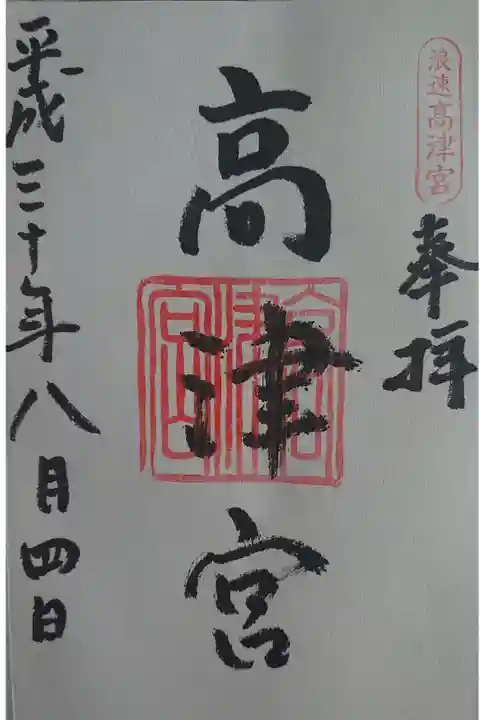 浪速高津宮
奉拝
高津宮
高津宮
平成三十年八月四日